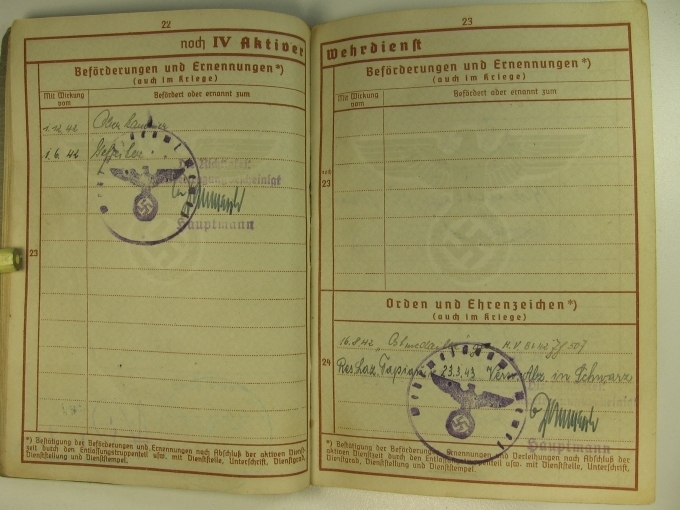 22
noch IV Aktiver
Beförderungen und Ernennungen*)
(auch im Kriege)
Mit Wirkung vom
Befördert oder ernannt zum
1.12.42
1.6.42 Gefreiter
Hauptmann
23
*) Bestätigung der Beförderungen und Ernennungen nach Abschluß der aktiven Dienst-
zeit durch den Entlassungstruppenteil usw. mit Dienststelle, Unterschrift, Dienstgrad,
Dienststellung und Dienststempel.
23
Wehrdienst
Beförderungen und Ernennungen*)
(auch im Kriege)
Mit Wirkung vom
Befördert oder ernannt zum
noch
23
Orden und Ehrenzeichen*)
(auch im Kriege)
16.8.42 Ostmedaille H.V.Bl. 42
24
Res. Laz. 23.3.43 Verw. Abz. in Schwarz
Wehrmeldeamt
Hauptmann
*) Bestätigung der Beförderungen, Ernennungen und Verleihungen nach Abschluß der
aktiven Dienstzeit durch den Entlassungstruppenteil usw. mit Dienststelle, Unterschrift,
Dienstgrad, Dienststellung und Dienststempel.